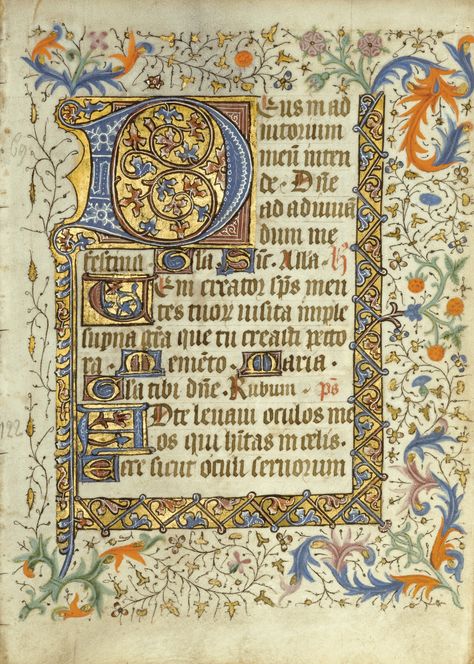 Deus in ad
iutorium
meū inten
de. Dn̄e
ad adiuuā
dum me
festina. Gla. Sic̄. Alla. h̄
Ueni creator sp̄s men
tes tuoꝝ visita imple
sup̄na gr̄a que tu creasti pecto
ra. Memēto. Maria.
Gla tibi dn̄e. Rubum. ps̄
Ad te leuaui oculos me
os qui h̄itas in celis.
Ecce sicut oculi seruorum
122